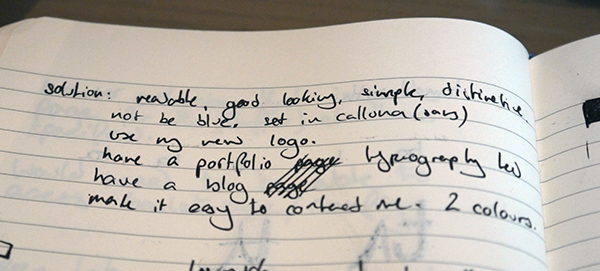 solution: readable, good looking, simple, distinctive.
not be blue, set in calluna (sans)
use my new logo.
have a portfolio page typography led
have a blog page
make it easy to contact me. 2 colours.